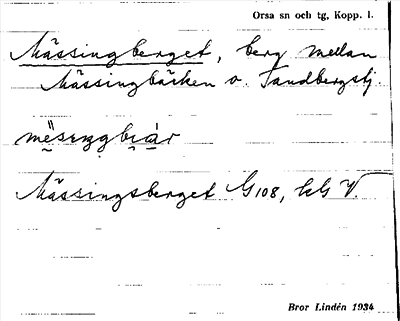 Orsa sn och tg, Kopp. l.
Mässingberget, berg mellan
Mässingbäcken o. Tandbergstj.
Mässingsberget G108,
Bror Lindén 1934